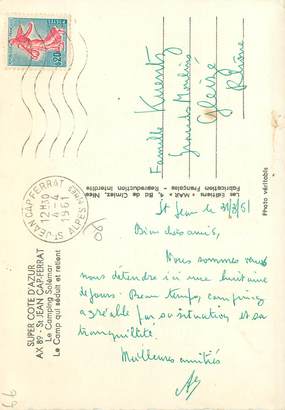 0,20
ST-JEAN-CAP-FERRAT
12H30
4-4
1961
ALPES-MMES
Famille Kuentz
Grands Moulins
Gleizé
Rhône
Les Editions "MAR" - 4, Bd de Cimiez, Nice
Fabrication Française - Reproduction Interdite
Photo véritable
SUPER COTE D'AZUR
AX 89 - St JEAN CAP-FERRAT
Le Camping Solémar
Le Camp qui séduit et retient
(06)
St Jean le 31/3/61
Bien chers amis,
Nous sommes venus
nous détendre ici une huitaine
de jours. Beau temps, camping
agréable par sa situation et sa
tranquillité.
Meilleures amitiés